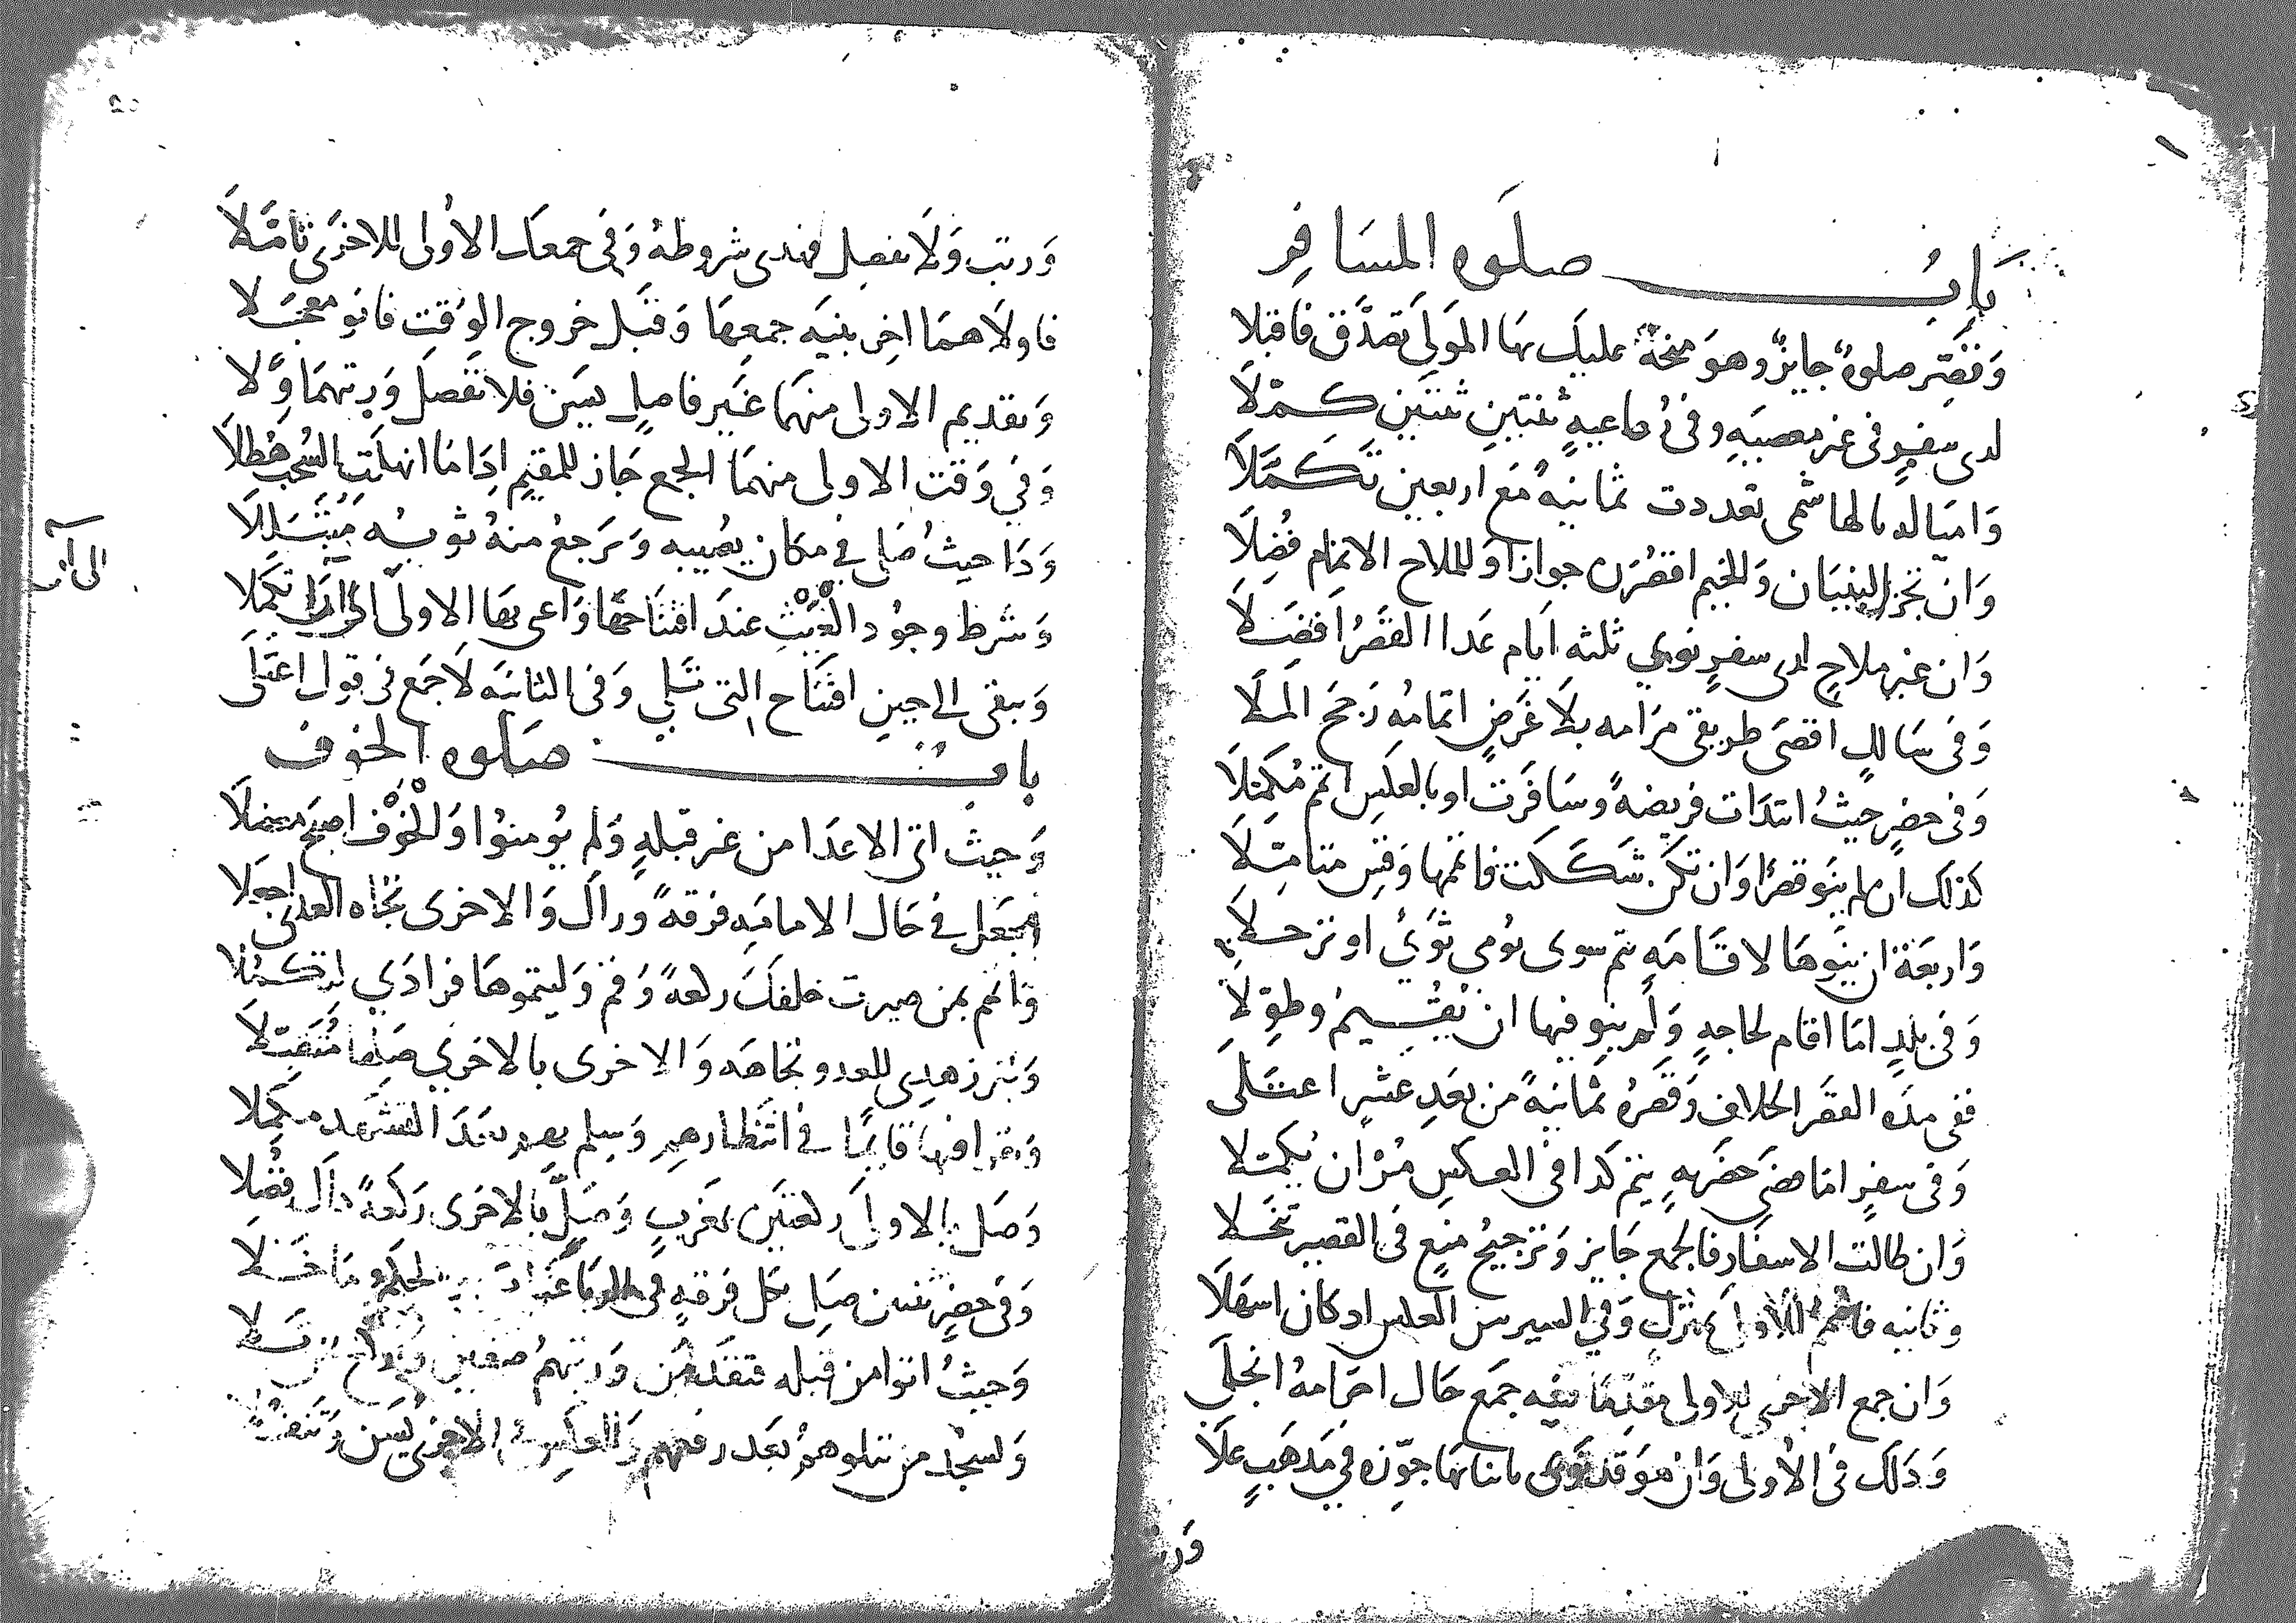 باب صلوه المسافر
وقصر صلوة جايز وهو منحة عليك بها المولى تصدق فاقبلا
لدى سفر فى غير معصيه وفى رباعية ثنتين ثنتين كملا
واميالد بالهاشمى تعددت ثمانية مع اربعين تكملا
وان تجز البنيان والخيم اقصرن جوازا وللملاح الاتمام فضلا
وان غير ملاح لدى سفر نوى ثلثه ايام غدا القصر افضلا
وفى سالك اقصى طريقى مرامه بلا غرض اتمامه رجح الملا
وفى حضر حيث ابتدات فريضة وسافرت او بالعكس اتم مكملا
كذلك ان لم ينو قصرا وان تكن شككت فاتمها وقس متامتلا
واربعة ان ينوها لاقامة يتم سوى يومى ثوى او ترحلا
وفى بلد اما اقام لحاجة ولم ينو فيها ان يقيم وطولا
ففى مده القصر الخلاف وقصره ثمانية من بعد عشر اعتلى
وفى سفر اما مضى حضريه يتم كذا فى العكس مر ان يكملا
وان طالت الاسفار فالجمع جايز وترجيح منع فى القصير تنخلا
وثانيه فاضمم للاولى بمنزل وفى السير سن العكس اد كان اسهلا
وان جمع الاخرى للاولى مقدما بنيه جمع حال احرامه انجلى
وذلك فى الاولى وان هو قد نوى باثنائها جوزه فى مذهب علا
ور
ورتب ولا تفصل فهذى شروطه وفى جمعك الاولى للاخرى تامتلا
فاولاهما اخر بنيه جمعها وقبل خروج الوقت فانو معجلا
وتقديم الاولى منهما غير فاصل يسن فلا تفصل ورتبهما ولا
وفي وقت الاولى منهما الجمع جاز للمقيم اذا ما انهلت السحب هطلا
وذا حيث صلى في مكان يصيبه ويرجع منه ثوبه متبللا
وشرط وجود الغيث عند افتتاحها واعى بها الاولى الى ان تكملا
ويبقى الى حين افتتاح التى تلى وفى الثانيه لا جمع فى قول اعتلى
باب صلوه الخوف
وحيث اتى الاعدا من غير قبلة ولم يومنوا والخوف اصبح معضلا
فجعل في حال الامامية فرقة وراك والاخرى تجاه العدى اجعلا
واتمم بمن صيرت خلفك ركعة وقم وليتموها فرادى لتكملا
وتبرز هذى للعدو تجاهه والاخرى بالاخرى صلها متنقلا
وتقرا فيها قايما في انتظارهم وسلم بهم بعد التشهد مكملا
وصل بالاولى ركعتين بمغرب وصل بالاخرى ركعة ذاك فضلا
وفى حضر ثنتين صل بكل فرقة فى
وحيث اتوا من قبله فتقدمن ورتبهم صفين
وليسجد من تتلوهم بعد رفعهم والعكس الاخرى يسن
الى آخره